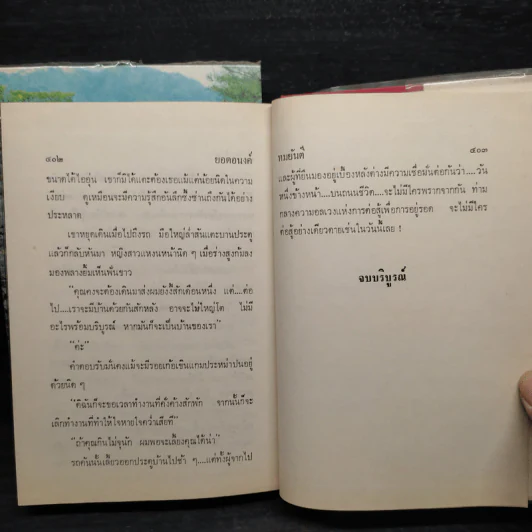 ๔๐๒ ยอดอนงค์
ขนาดได้ไออุ่น เขาก็มิได้แตะต้องเธอแม้แต่น้อยนิดในความ
เงียบ ดูเหมือนจะมีความรู้สึกอันลึกซึ้งซ่านถึงกันได้อย่าง
ประหลาด
เขาหยุดเดินเมื่อไปถึงรถ มือใหญ่ล่ำสันแตะบานประตู
แล้วก็กลับหันมา หญิงสาวแหงนหน้านิด ๆ เมื่อร่างสูงก้มลง
มองพลางยิ้มเห็นฟันขาว
"คุณคงจะต้องเดินมาส่งผมยังงี้สักเดือนหนึ่ง แต่....ต่อ
ไป.....เราจะมีบ้านด้วยกันสักหลัง อาจจะไม่ใหญ่โต ไม่มี
อะไรพร้อมบริบูรณ์ หากมันก็จะเป็นบ้านของเรา"
"ค่ะ"
คำตอบรับมั่นคงแม้จะมีรอยเก้อเขินแกมประหม่าปนอยู่
ด้วยนิด ๆ
"ดิฉันก็จะขอเวลาทำงานที่คั่งค้างสักพัก จากนั้นก็จะ
เลิกทำงานที่ทำให้ใจหายใจคว่ำเสียที"
"ถ้าคุณกินไม่จุนัก ผมพอจะเลี้ยงคุณได้น่า"
รถคันนั้นเลี้ยวออกประตูบ้านไปช้า ๆ....แต่ทั้งผู้จากไป
ทมยันตี ๔๐๓
และผู้ที่ยืนมองอยู่เบื้องหลังต่างมีความเชื่อมั่นต่อกันว่า....วัน
หนึ่งข้างหน้า.....บนถนนชีวิต....จะไม่มีใครพรากจากกัน ท่าม
กลางความอลเวงแห่งการต่อสู้เพื่อการอยู่รอด จะไม่มีใคร
ต่อสู้อย่างเดียวดายเช่นในวันนี้เลย !
จบบริบูรณ์